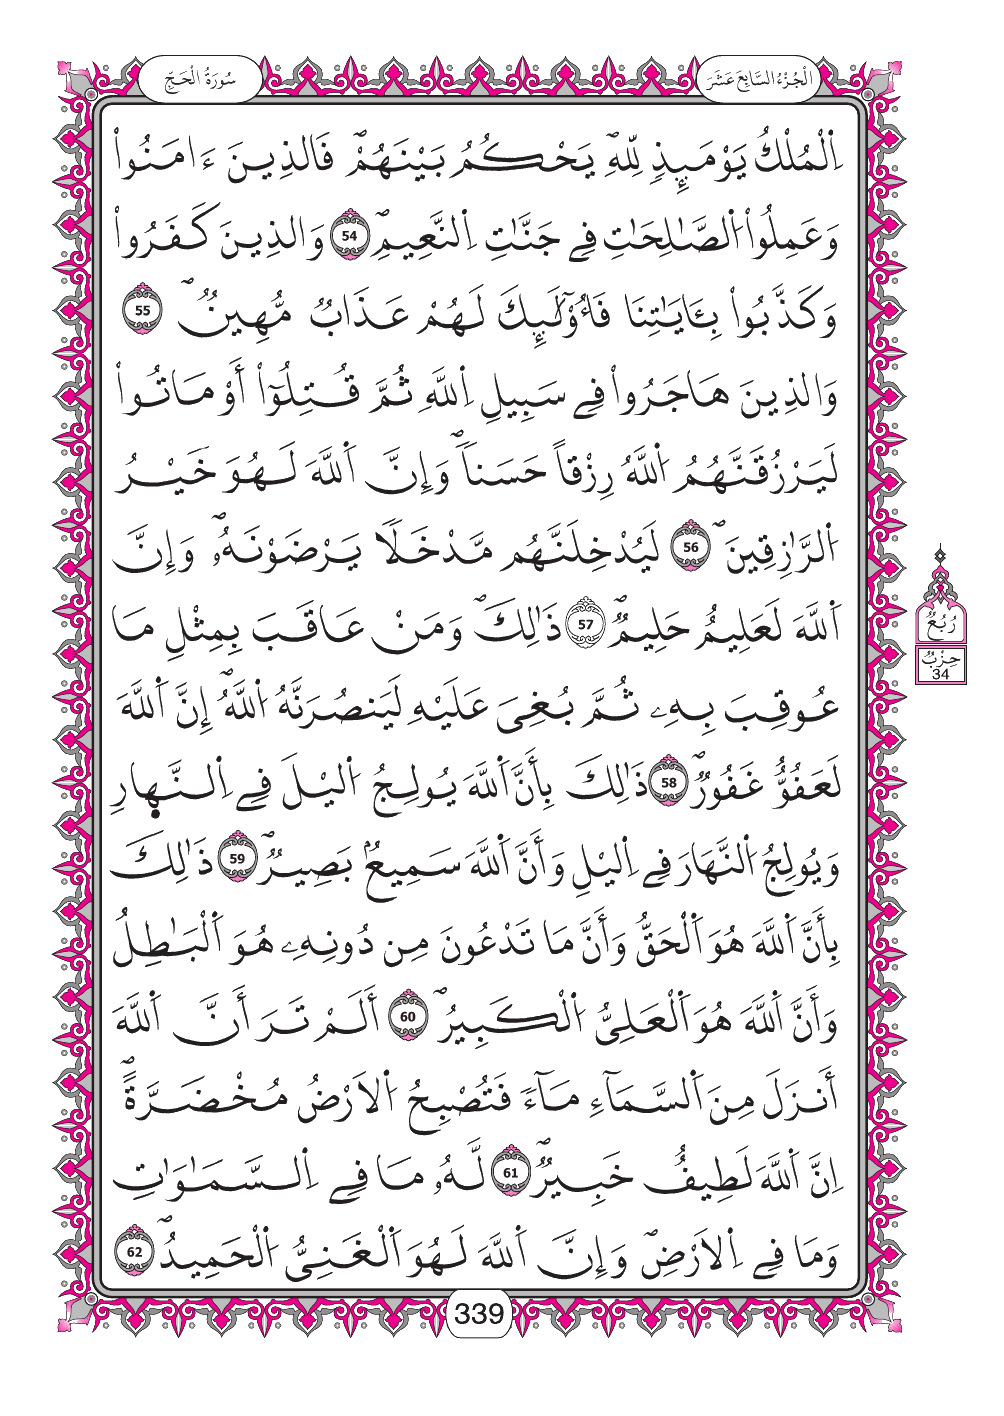 سُورَةُ الْحَجِّ
الْجُزْءُ السَّابِعَ عَشَرَ
اِ۬لْمُلْكُ يَوْمَئِذٖ لِّلهِۖ يَحْكُمُ بَيْنَهُمْۖ فَالذِينَ ءَامَنُواْ
وَعَمِلُواْ اُ۬لصَّٰلِحَٰتِ فِے جَنَّٰتِ اِ۬لنَّعِيمِۖ 54 وَالذِينَ كَفَرُواْ
وَكَذَّبُواْ بِـَٔايَٰتِنَا فَأُوْلَٰٓئِكَ لَهُمْ عَذَابٞ مُّهِينٞۖ 55
وَالذِينَ هَاجَرُواْ فِے سَبِيلِ اِ۬للَّهِ ثُمَّ قُتِلُوٓاْ أَوْ مَاتُواْ
لَيَرْزُقَنَّهُمُ اُ۬للَّهُ رِزْقاً حَسَناٗۖ وَإِنَّ اَ۬للَّهَ لَهُوَ خَيْرُ
اُ۬لرَّٰزِقِينَۖ 56 لَيُدْخِلَنَّهُم مَّدْخَلاٗ يَرْضَوْنَهُۥۖ وَإِنَّ
اَ۬للَّهَ لَعَلِيمٌ حَلِيمٞۖ 57 ذَٰلِكَۖ وَمَنْ عَاقَبَ بِمِثْلِ مَا
عُوقِبَ بِهِۦ ثُمَّ بُغِيَ عَلَيْهِ لَيَنصُرَنَّهُ اُ۬للَّهُۖ إِنَّ اَ۬للَّهَ
لَعَفُوٌّ غَفُورٞۖ 58 ذَٰلِكَ بِأَنَّ اَ۬للَّهَ يُولِجُ اُ۬ليْلَ فِے اِ۬لنَّهارِ
وَيُولِجُ اُ۬لنَّهَارَ فِے اِ۬ليْلِ وَأَنَّ اَ۬للَّهَ سَمِيعُۢ بَصِيرٞۖ 59 ذَٰلِكَ
بِأَنَّ اَ۬للَّهَ هُوَ اَ۬لْحَقُّ وَأَنَّ مَا تَدْعُونَ مِن دُونِهِۦ هُوَ اَ۬لْبَٰطِلُ
وَأَنَّ اَ۬للَّهَ هُوَ اَ۬لْعَلِيُّ اُ۬لْكَبِيرُۖ 60 أَلَمْ تَرَ أَنَّ اَ۬للَّهَ
أَنزَلَ مِنَ اَ۬لسَّمَآءِ مَآءٗ فَتُصْبِحُ اُ۬لَارْضُ مُخْضَرَّةًۖ
اِنَّ اَ۬للَّهَ لَطِيفٌ خَبِيرٞۖ 61 لَّهُۥ مَا فِے اِ۬لسَّمَٰوَٰتِ
وَمَا فِے اِ۬لَارْضِۖ وَإِنَّ اَ۬للَّهَ لَهُوَ اَ۬لْغَنِيُّ اُ۬لْحَمِيدُۖ 62
رُبُعٌ
حِزْبٌ
34
339